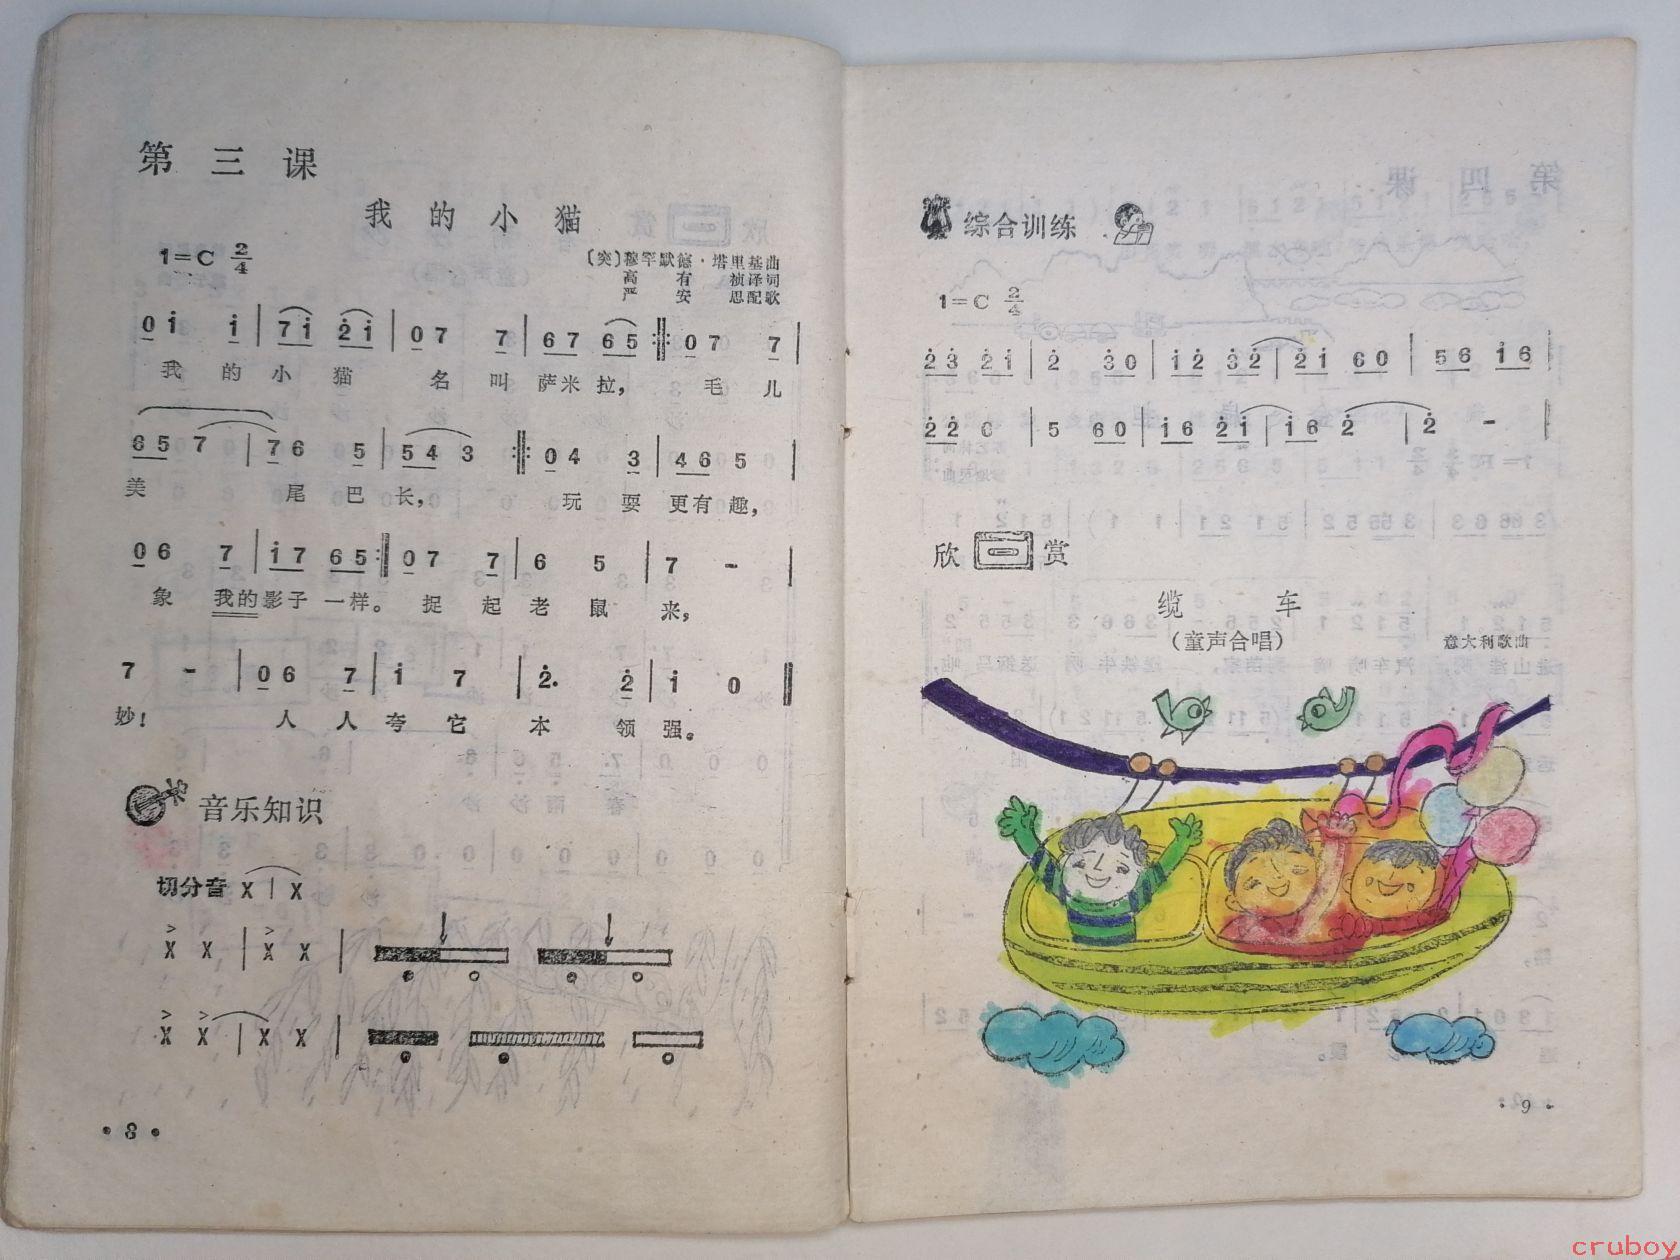 第三课
我的小猫
1=C 2/4
〔突〕穆罕默德·塔里基曲
高有桢译词
严安思配歌
0 i̇ i̇ | 7 i̇ 2̇ i̇ | 0 7 7 | 6 7 6 5 :‖: 0 7 7 |
我 的 小 猫 名 叫 萨米 拉， 毛 儿
6 5 7 | 7 6 5 | 5 4 3 :‖: 0 4 3 | 4 6 5 |
美 尾 巴 长， 玩 耍 更有 趣，
0 6 7 | i̇ 7 6 5 :‖ 0 7 7 | 6 5 | 7 - |
象 我的 影子 一样。 捉 起 老 鼠 来，
7 - | 0 6 7 | i̇ 7 | 2̇. 2̇ | i̇ 0 ‖
妙！ 人 人 夸 它 本 领 强。
音乐知识
切分音 X | X
> >
X X | X X |
> >
X X | X X |
·8·
综合训练
1=C 2/4
2̇ 3̇ 2̇ i̇ | 2̇ 3̇ 0 | i̇ 2̇ 3̇ 2̇ | 2̇ i̇ 6 0 | 5 6 i̇ 6 |
2̇ 2̇ 6 | 5 6 0 | i̇ 6 2̇ i̇ | i̇ 6 2̇ | 2̇ - |
欣赏
缆车
（童声合唱）
意大利歌曲
·9·
cruboy